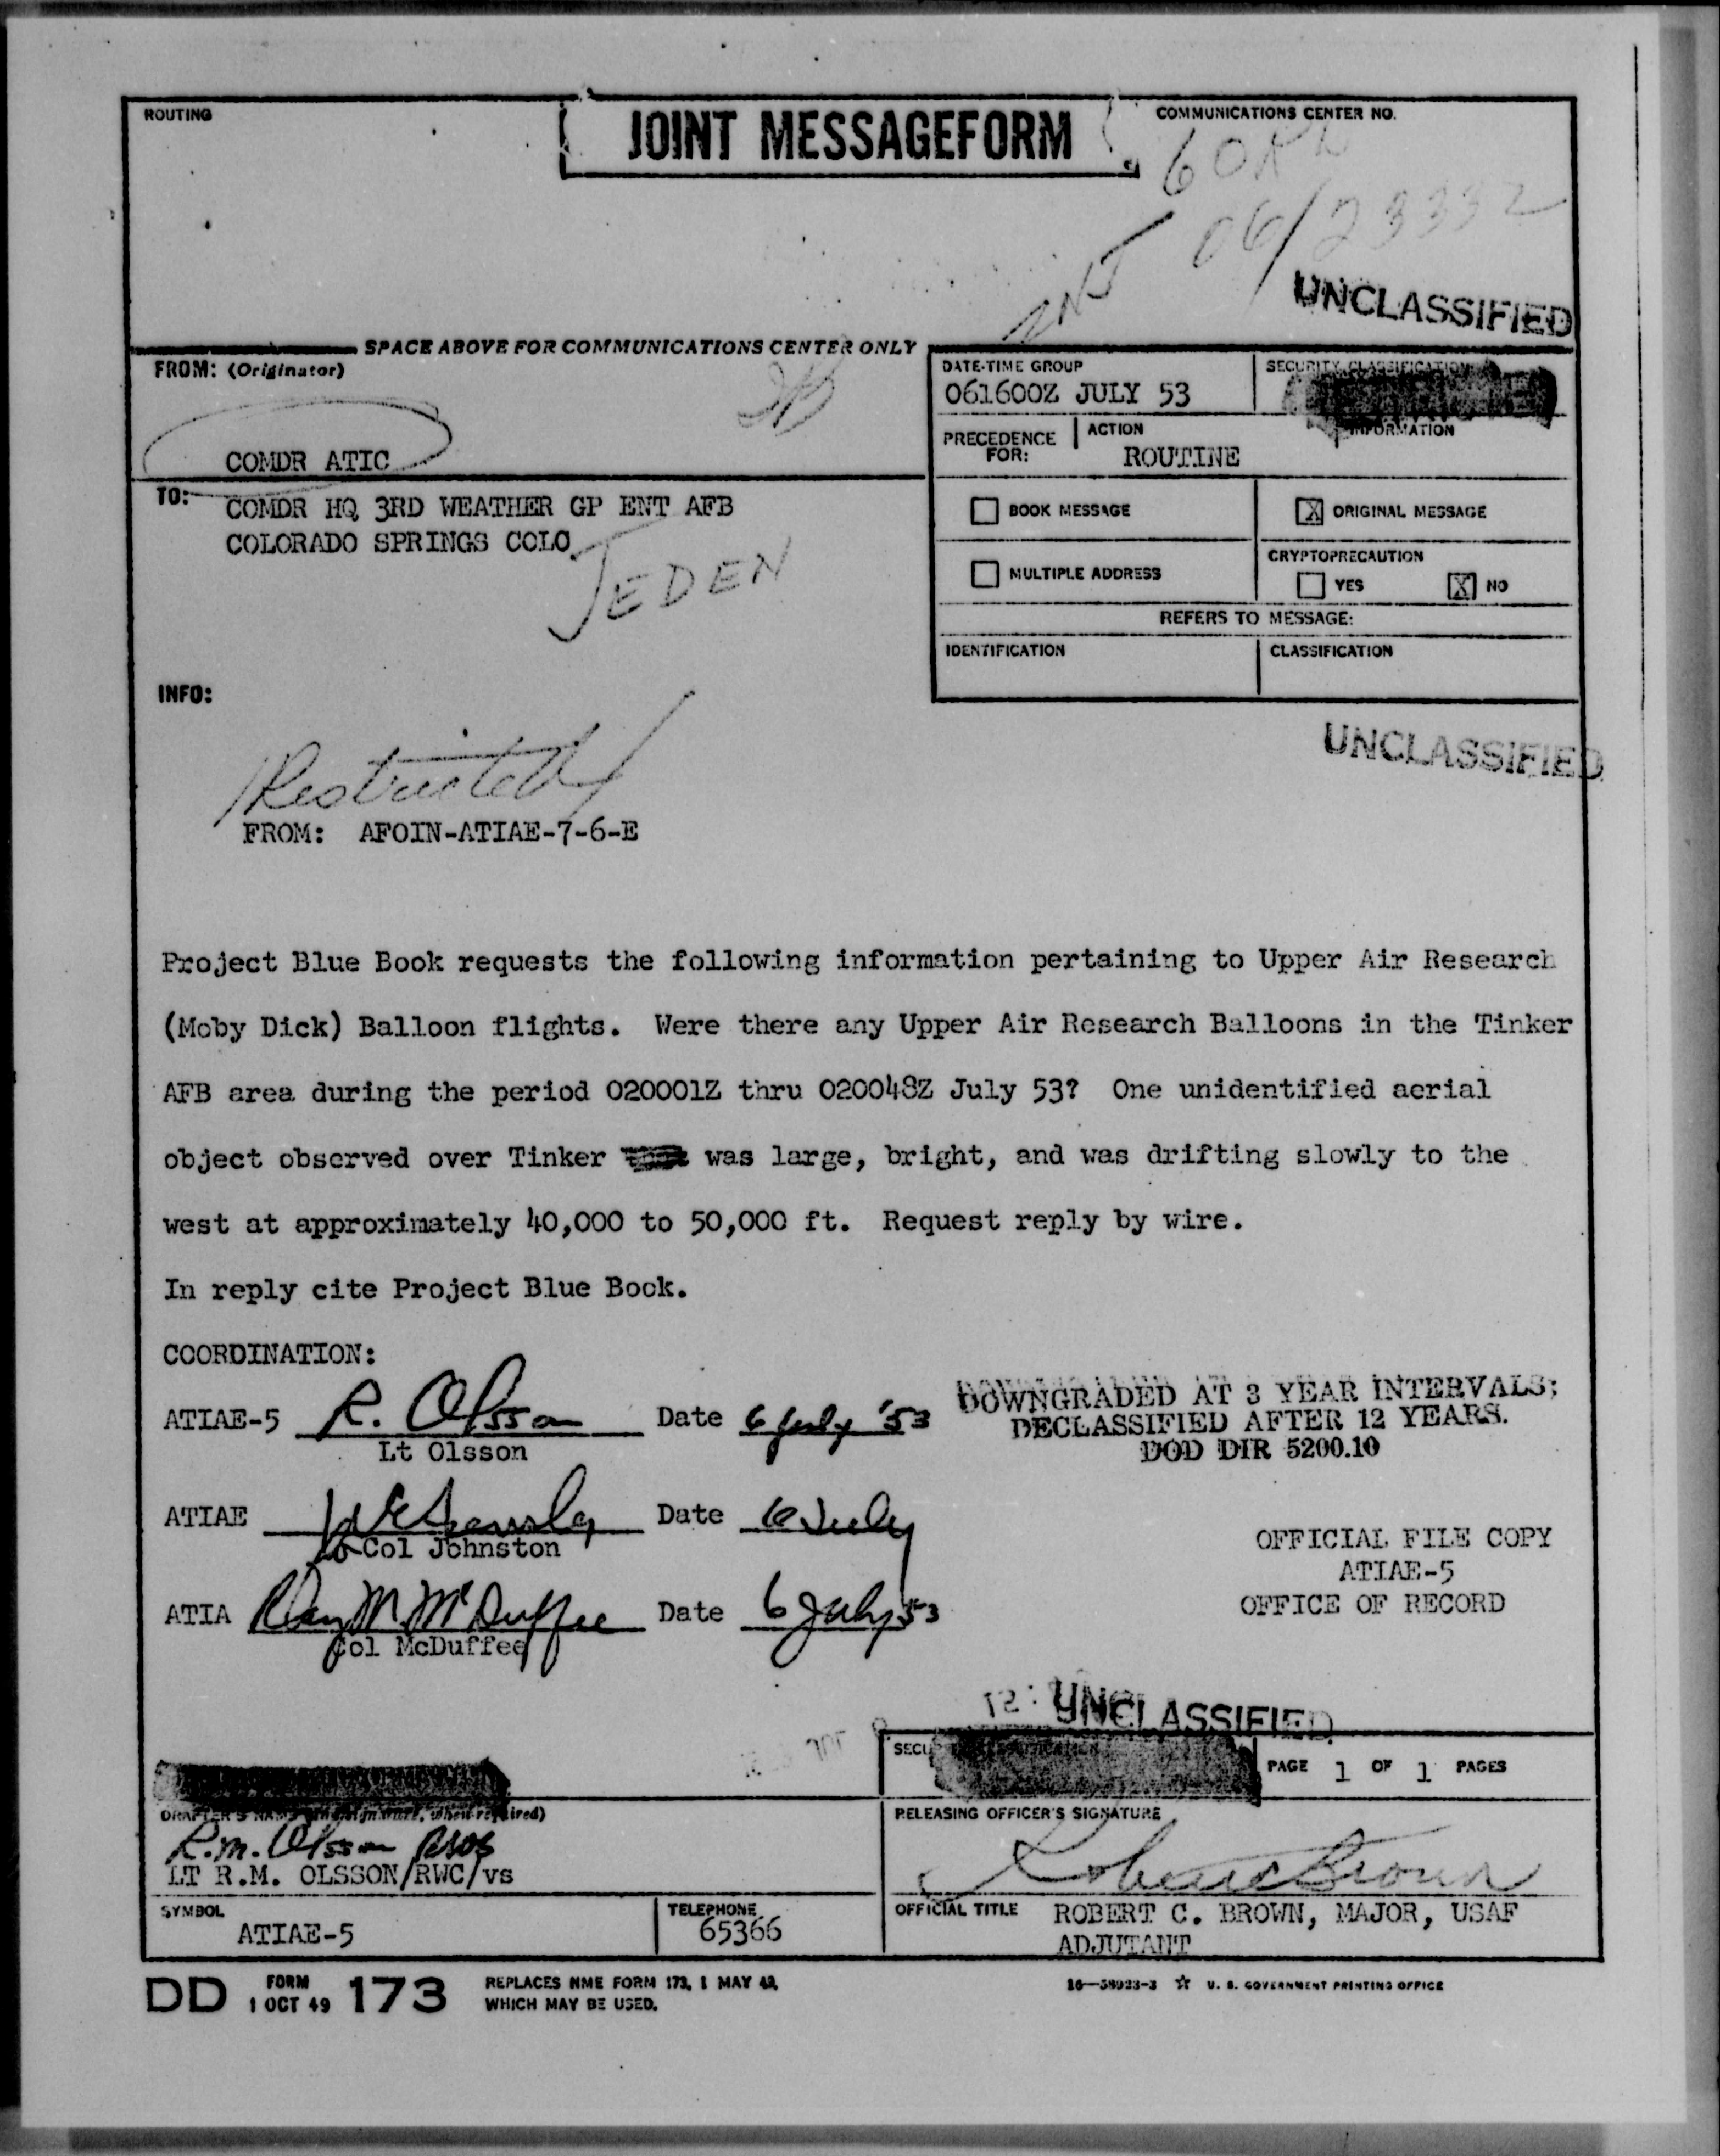 ROUTING
JOINT MESSAGEFORM
COMMUNICATIONS CENTER NO.
UNCLASSIFIED
SPACE ABOVE FOR COMMUNICATIONS CENTER ONLY
FROM: (Originator)
COMDR ATIC
DATE-TIME GROUP
061600Z JULY 53
SECURITY CLASSIFICATION
PRECEDENCE FOR:
ACTION
ROUTINE
INFORMATION
TO: COMDR HQ 3RD WEATHER GP ENT AFB
COLORADO SPRINGS COLO
JEDEN
BOOK MESSAGE
X ORIGINAL MESSAGE
MULTIPLE ADDRESS
CRYPTOPRECAUTION
YES X NO
REFERS TO MESSAGE:
IDENTIFICATION
CLASSIFICATION
INFO:
UNCLASSIFIED
Restricted
FROM: AFOIN-ATIAE-7-6-E
Project Blue Book requests the following information pertaining to Upper Air Research
(Moby Dick) Balloon flights. Were there any Upper Air Research Balloons in the Tinker
AFB area during the period 020001Z thru 020048Z July 53? One unidentified aerial
object observed over Tinker was large, bright, and was drifting slowly to the
west at approximately 40,000 to 50,000 ft. Request reply by wire.
In reply cite Project Blue Book.
COORDINATION:
ATIAE-5 R. Olsson Date 6 July '53
Lt Olsson
DOWNGRADED AT 3 YEAR INTERVALS;
DECLASSIFIED AFTER 12 YEARS.
DOD DIR 5200.10
ATIAE Date 6 July
Col Johnston
OFFICIAL FILE COPY
ATIAE-5
OFFICE OF RECORD
ATIA McDuffee Date 6 July 53
Col McDuffee
UNCLASSIFIED
PAGE 1 OF 1 PAGES
DRAFTER'S NAME (and signature, when required)
R.M. Olsson
LT R.M. OLSSON/RWC/vs
RELEASING OFFICER'S SIGNATURE
Robert C Brown
SYMBOL
ATIAE-5
TELEPHONE
65366
OFFICIAL TITLE ROBERT C. BROWN, MAJOR, USAF
ADJUTANT
DD FORM 1 OCT 49 173
REPLACES NME FORM 173, 1 MAY 49,
WHICH MAY BE USED.
16—58923-3 ☆ U. S. GOVERNMENT PRINTING OFFICE